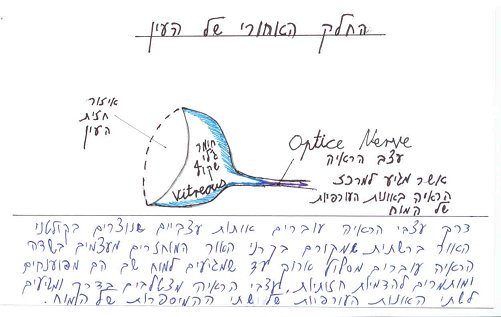 החלק האחורי של העין
איזור
חזית
העין
חומר
ג'לי
שקוף
Vitreous
Optice Nerve
עצב הראיה
אשר מגיע למרכז
הראיה באונות העורפיות
של המוח
דרך עצבי הראיה עוברים אותות עצביים שנוצרים בקולטני
האור ברשתית שמקורם בקרני האור המוחזרים מעצמים בשדה
הראיה עוברים מסלול ארוך עד שמגיעים למוח שם הם מפוענחים
ומותמרים להדמיות חזותיות. עצבי הראיה מצטלבים בדרך ומגיעים
לשתי האונות העורפיות של שתי ההמיספרות של המוח.